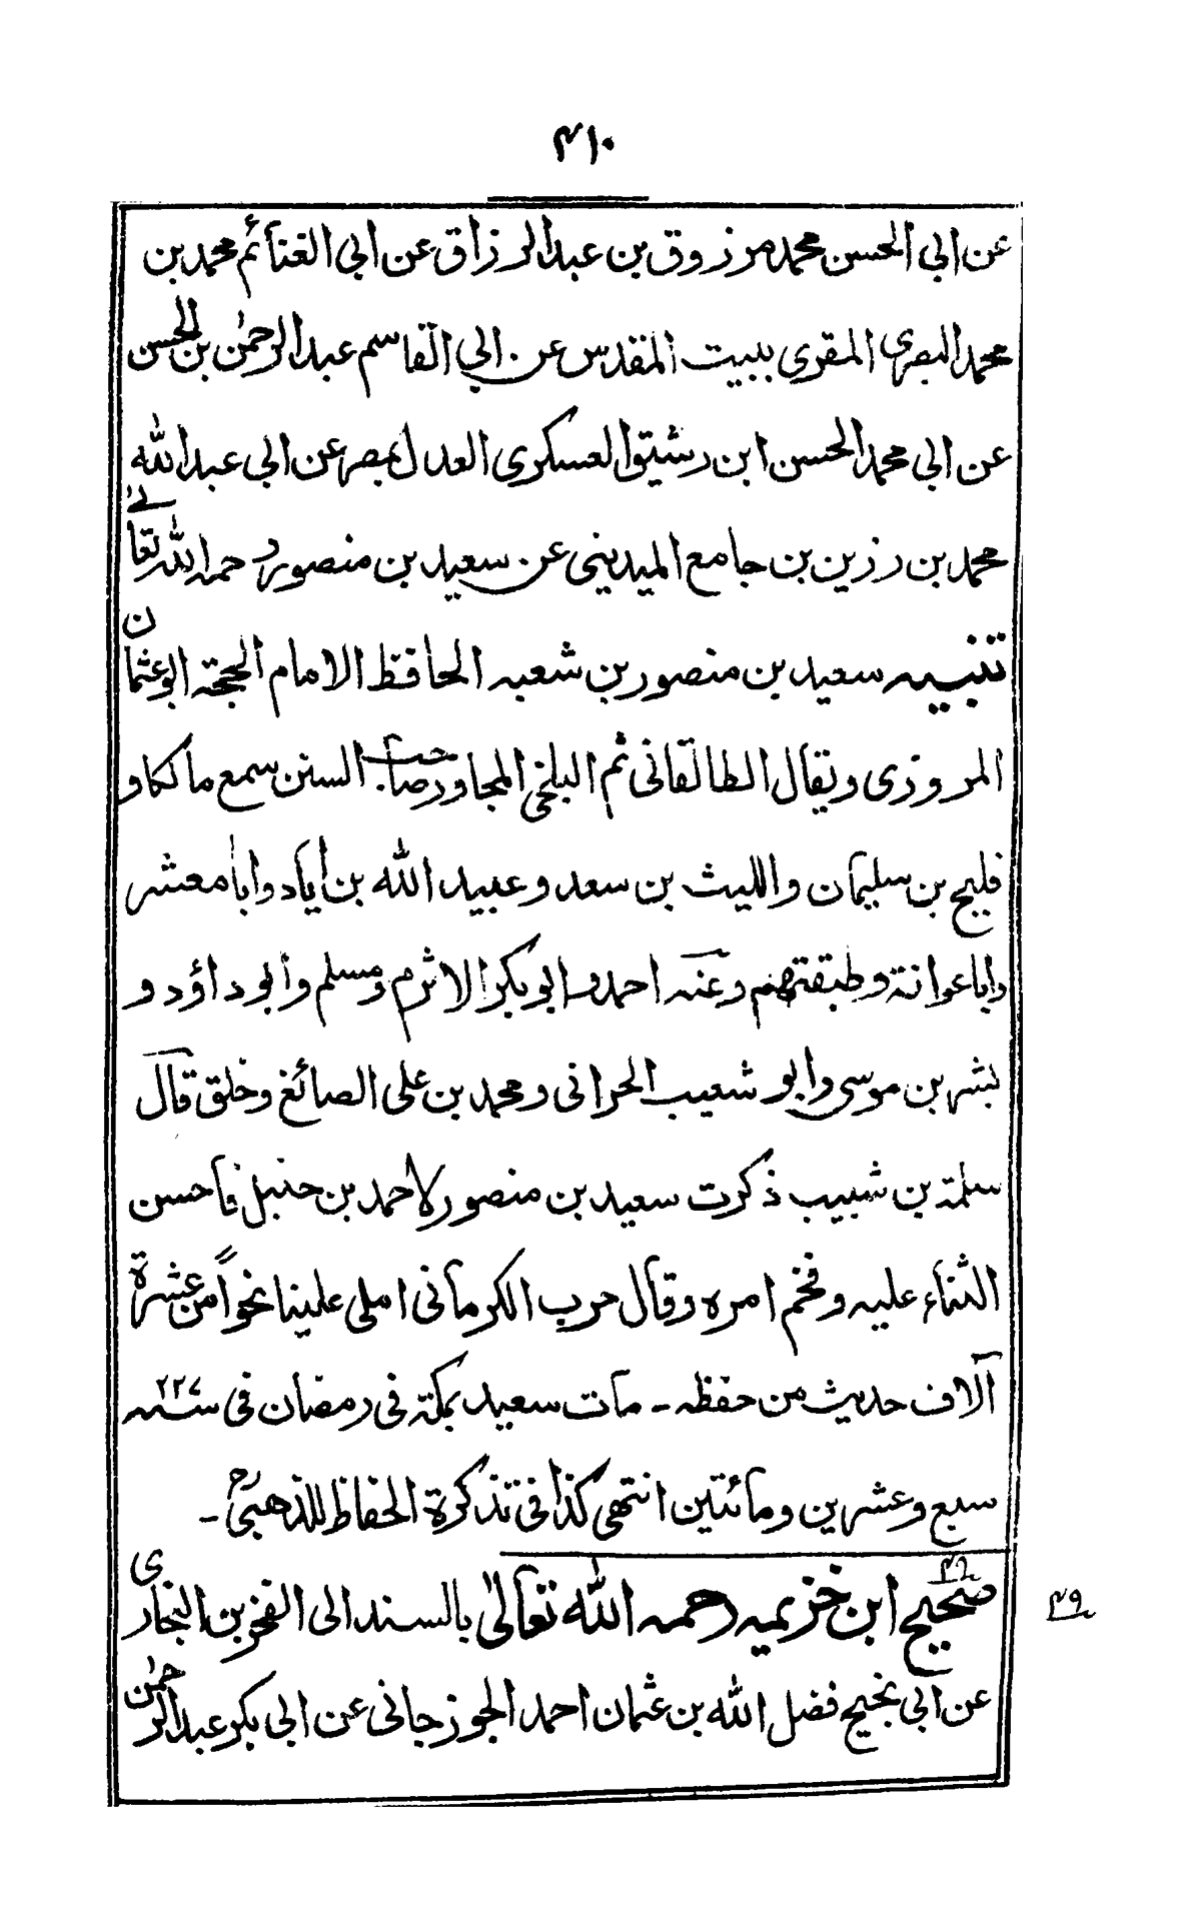 ۴۱۰
عن ابي الحسن محمد مرزوق بن عبد الرزاق عن ابي الغنائم محمد بن
محمد البصرى المقرى ببيت المقدس عن ابي القاسم عبد الرحمٰن بن الحسن
عن ابي محمد الحسن ابن رشيق العسكرى العدل بمصر عن ابي عبد الله
محمد بن رزين بن جامع المدينى عن سعيد بن منصور رحمه الله تعالى
تنبيه سعيد بن منصور بن شعبه الحافظ الامام الحجة ابو عثمان
المروزى ويقال الطالقانى ثم البلخى المجاور صاحب السنن سمع مالكا و
فليح بن سليمان والليث بن سعد وعبيد الله بن اياد وابا معشر
وابا عوانة وطبقتهم وعنه احمد و ابو بكر الاثرم ومسلم وابو داؤد و
بشر بن موسى وابو شعيب الحرانى ومحمد بن على الصائغ وخلق قال
سلمة بن شبيب ذكرت سعيد بن منصور لاحمد بن حنبل فاحسن
الثناء عليه وفخم امره وقال حرب الكرمانى املى علينا نحواً من عشرة
آلاف حديث من حفظه ـ مات سعيد بمكة فى رمضان فى سنه ۲۲۷
سبع وعشرين ومائتين انتهى كذا فى تذكرة الحفاظ للذهبىؒ ـ
صحيح ابن خزيمه رحمه الله تعالىٰ بالسند الى الفخر بن البخارى
۴۹
عن ابي نجيح فضل الله بن عثمان احمد الجوزجانى عن ابي بكر عبد الرحمٰن